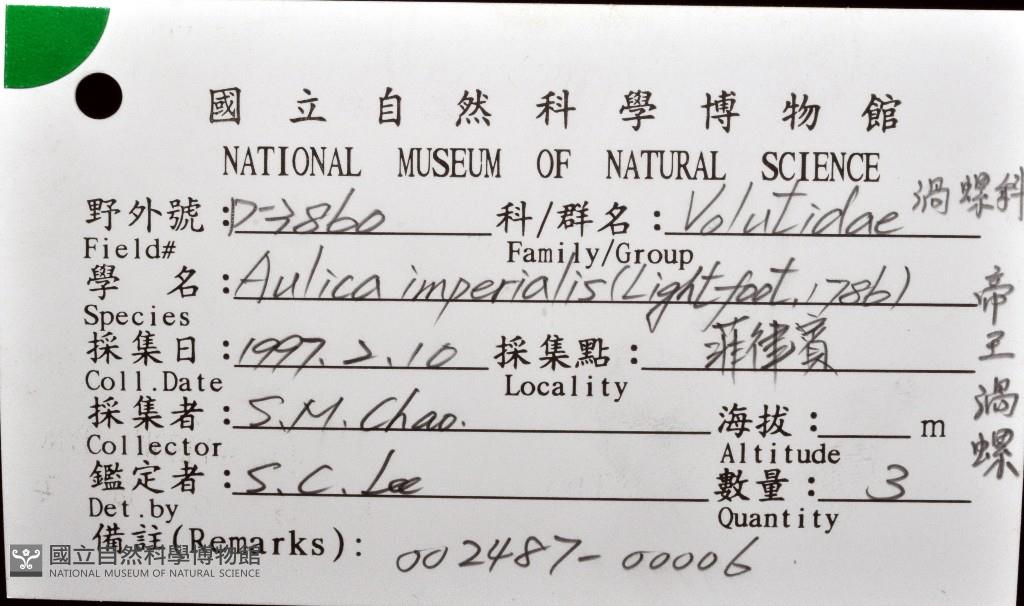 國立自然科學博物館
NATIONAL MUSEUM OF NATURAL SCIENCE
野外號:D-3860 科/群名:Volutidae 渦螺科
Field# Family/Group
學名:Aulica imperialis (Lightfoot, 1786)
Species
帝王渦螺
採集日:1997.2.10 採集點:菲律賓
Coll.Date Locality
採集者:S.M.Chao. 海拔: m
Collector Altitude
鑑定者:S.C.Lee 數量:3
Det.by Quantity
備註(Remarks):002487-00006
國立自然科學博物館
NATIONAL MUSEUM OF NATURAL SCIENCE